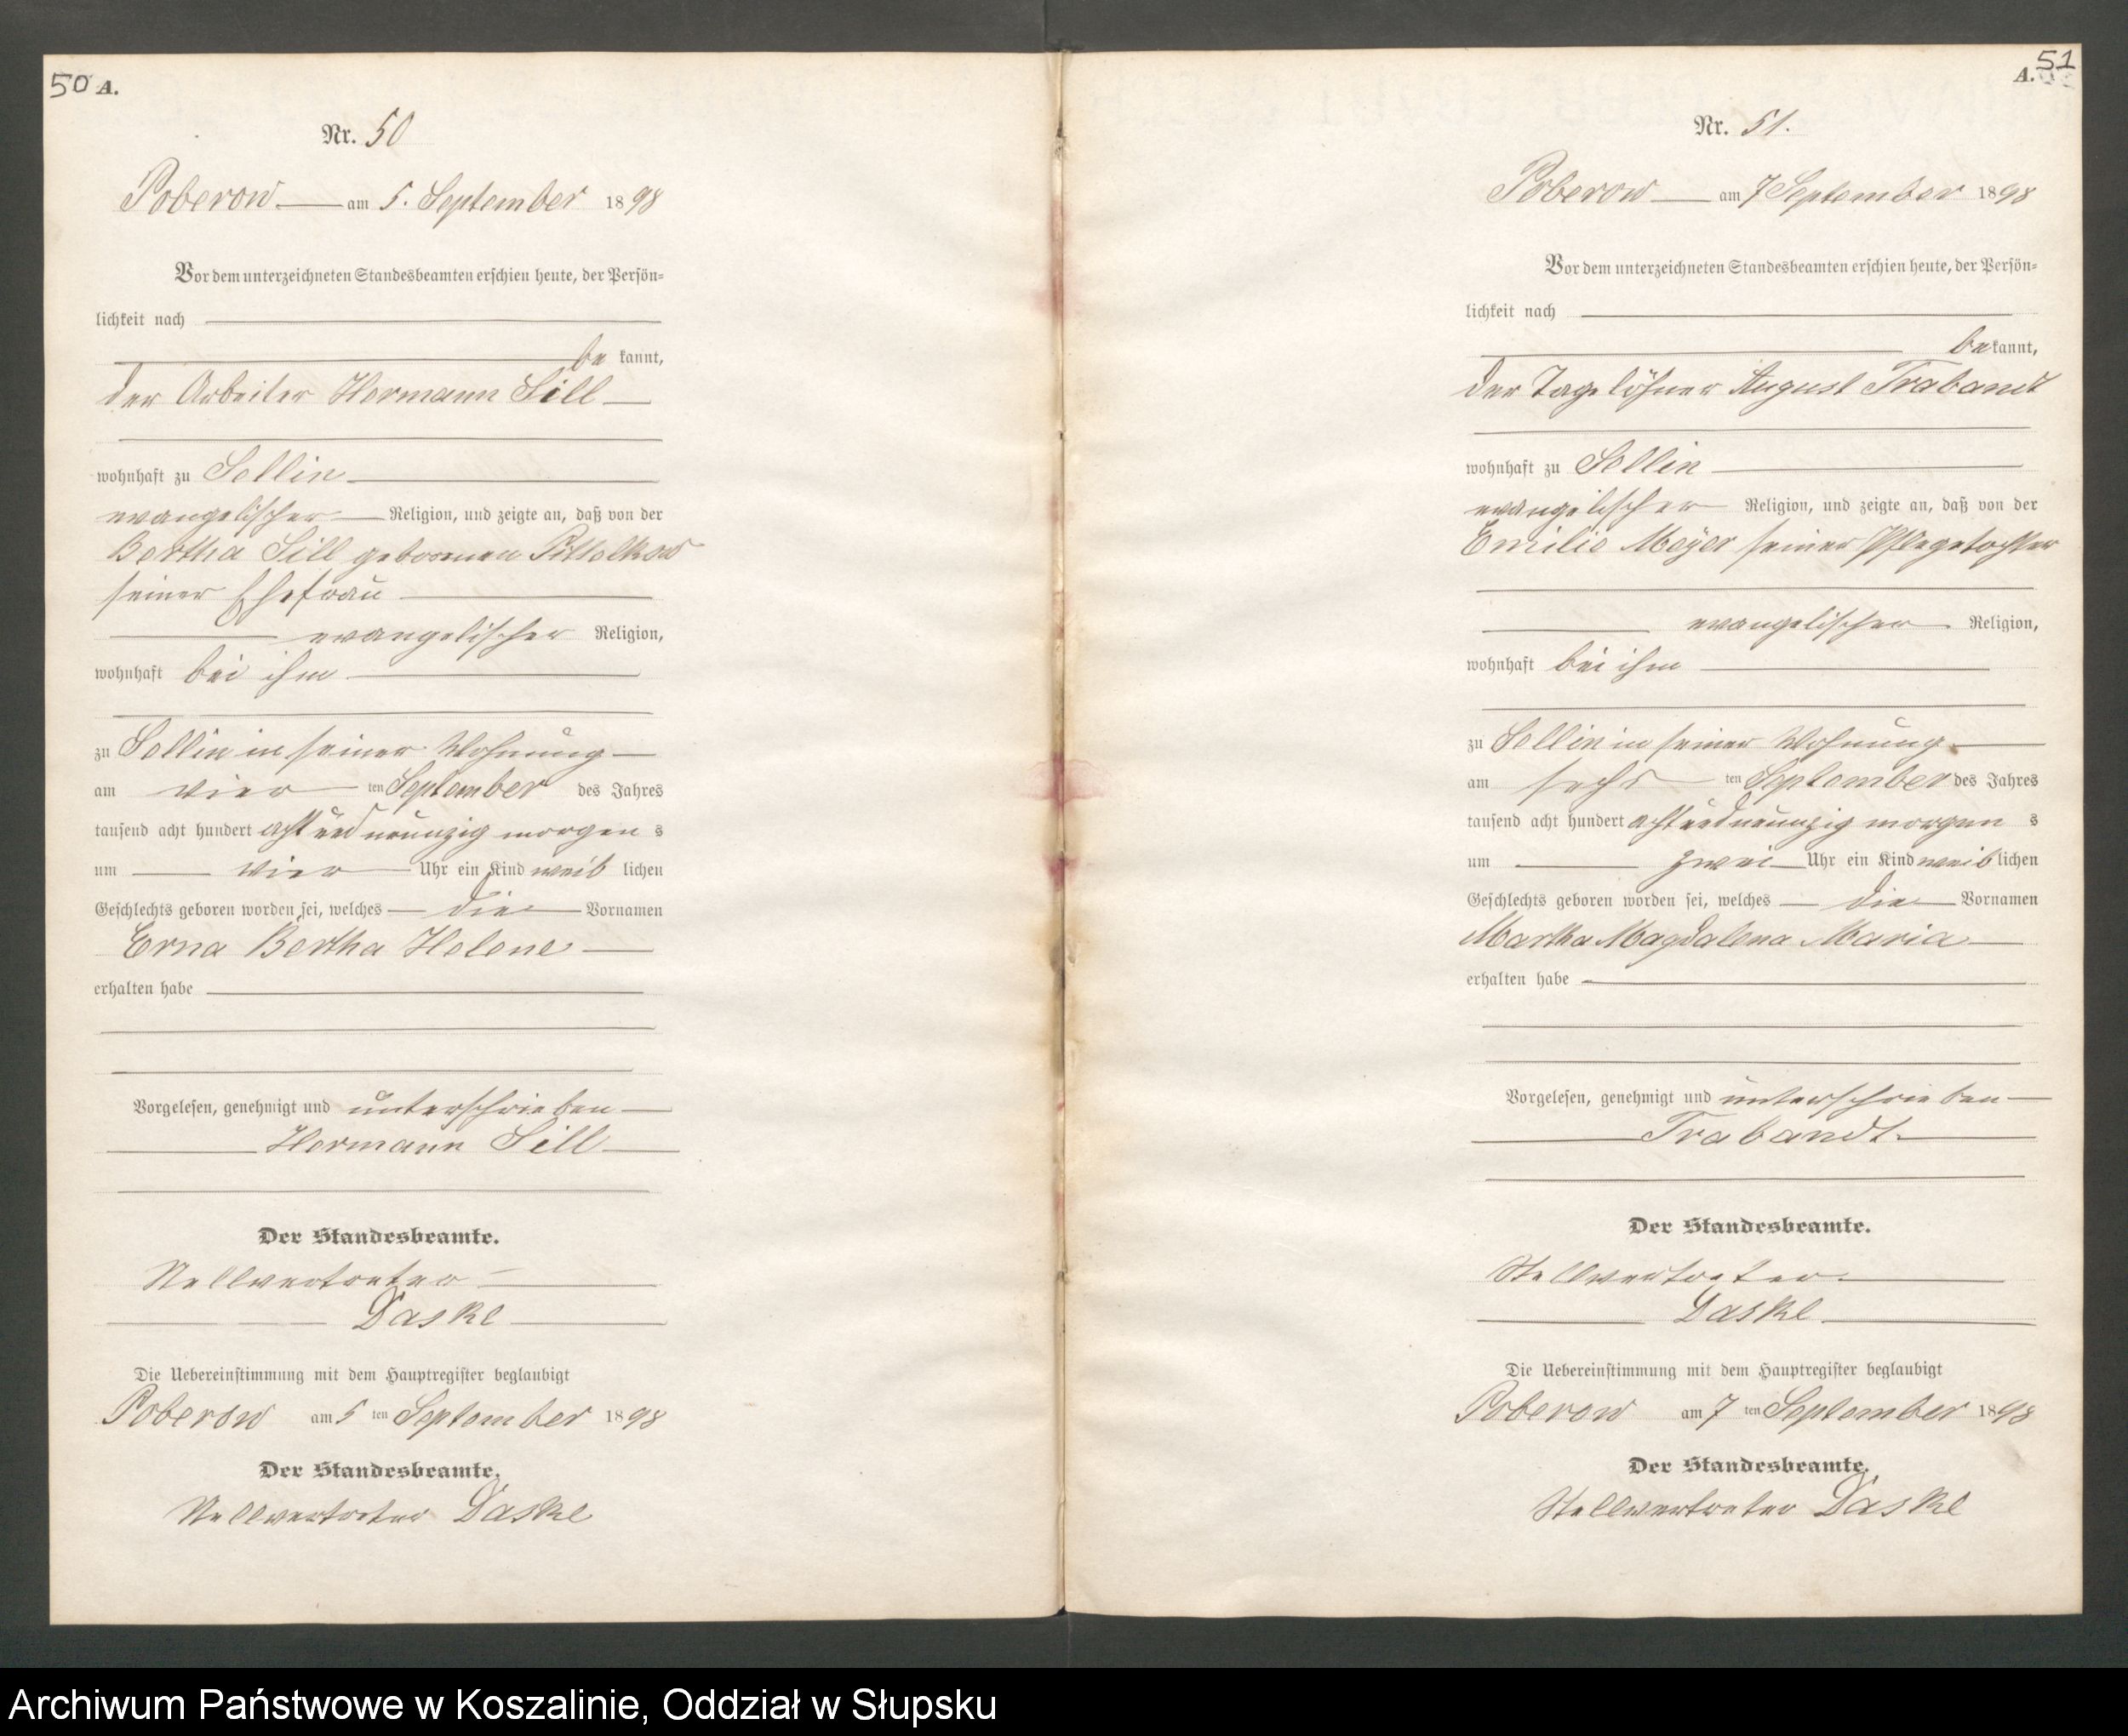 50 A.
Nr. 50
Poberow am 5. September 1898
Vor dem unterzeichneten Standesbeamten erschien heute, der Persön-
lichkeit nach
be kannt,
der Arbeiter Hermann Sill
wohnhaft zu Sellin
evangelischer Religion, und zeigte an, daß von der
Bertha Sill geborenen Pittelkow
seiner Ehefrau
evangelischer Religion,
wohnhaft bei ihm
zu Sellin in seiner Wohnung
am vier ten September des Jahres
tausend acht hundert acht und neunzig morgen s
um vier Uhr ein Kind weib lichen
Geschlechts geboren worden sei, welches die Vornamen
Erna Bertha Helene
erhalten habe
Vorgelesen, genehmigt und unterschrieben
Hermann Sill
Der Standesbeamte.
Stellvertreter
Daske
Die Uebereinstimmung mit dem Hauptregister beglaubigt
Poberow am 5 ten September 1898
Der Standesbeamte.
Stellvertreter Daske
A. 51
Nr. 51.
Poberow am 7 September 1898
Vor dem unterzeichneten Standesbeamten erschien heute, der Persön-
lichkeit nach
be kannt,
der Tagelöhner August Trabandt
wohnhaft zu Sellin
evangelischer Religion, und zeigte an, daß von der
Emilie Meyer seiner Pflegetochter
evangelischer Religion,
wohnhaft bei ihm
zu Sellin in seiner Wohnung
am sechs ten September des Jahres
tausend acht hundert acht und neunzig morgen s
um zwei Uhr ein Kind weib lichen
Geschlechts geboren worden sei, welches die Vornamen
Martha Magdalena Maria
erhalten habe
Vorgelesen, genehmigt und unterschrieben
Trabandt
Der Standesbeamte.
Stellvertreter
Daske
Die Uebereinstimmung mit dem Hauptregister beglaubigt
Poberow am 7 ten September 1898
Der Standesbeamte.
Stellvertreter Daske
Archiwum Państwowe w Koszalinie, Oddział w Słupsku